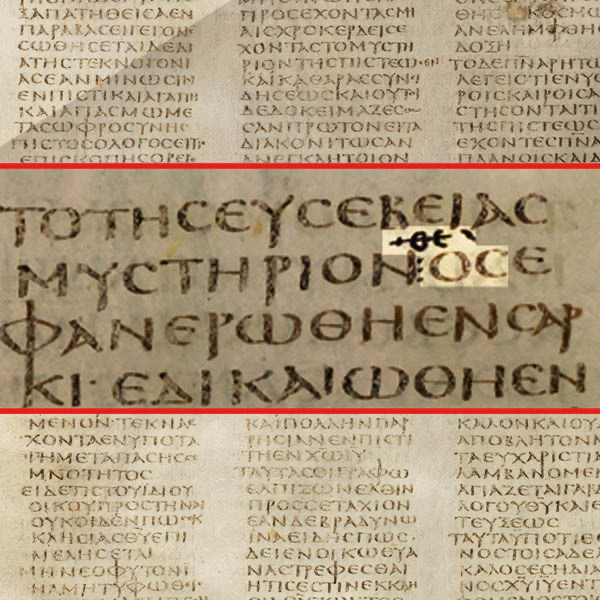 ΞΑΠΑΤΗΘΕΙϹΑΕΝ
ΠΑΡΑΒΑϹΕΙΓΕΓΟΝΕ
ϹΩΘΗϹΕΤΑΙΔΕΔΙ
ΑΤΗϹΤΕΚΝΟΓΟΝΙ
ΑϹΕΑΝΜΙΝΩϹΙΝ
ΕΝΠΙϹΤΙΚΑΙΑΓΑΠΗ
ΚΑΙΑΓΙΑϹΜΩΜΕ
ΤΑϹΩΦΡΟϹΥΝΗϹ
ΠΙϹΤΟϹΟΛΟΓΟϹΕΙΤΙ
ΕΠΙϹΚΟΠΗϹΟΡΕΓΕ
ΠΡΟϹΕΧΟΝΤΑϹΜ
ΑΙϹΧΡΟΚΕΡΔΕΙϹΕ
ΧΟΝΤΑϹΤΟΜΥϹΤΗ
ΡΙΟΝΤΗϹΠΙϹΤΕΩϹΕΝ
ΚΑΙΚΑΘΑΡΑϹϹΥΝΙ
ΔΗϹΕΩϹΚΑΙΟΥΤΟΙ
ΔΕΔΟΚΕΙΜΑΖΕϹΘΩ
ϹΑΝΠΡΩΤΟΝΕΙΤΑ
ΔΙΑΚΟΝΙΤΩϹΑΝ
ΑΝΕΓΚΛΗΤΟΙΟΝ
ΘΗΕΝΚΟϹΜΩ
ΑΝΕΛΗΜΦΘΗΕΝ
ΔΟΞΗ
ΤΟΔΕΠΝΑΡΗΤΩ
ΛΕΓΕΙϹΤΙΕΝΥϹ
ΡΟΙϹΚΑΙΡΟΙϹΑ
ϹΤΗϹΟΝΤΑΙΤΙ
ΤΗϹΠΙϹΤΕΩϹ
ΕΧΟΝΤΕϹΠΝΑ
ΠΛΑΝΟΙϹΚΑΙΔ
ΤΟΤΗϹΕΥϹΕΒΕΙΑϹ
ΘΕ
ΜΥϹΤΗΡΙΟΝΟϹΕ
ΦΑΝΕΡΩΘΗΕΝϹΑΡ
ΚΙ·ΕΔΙΚΑΙΩΘΗΕΝ
ΜΕΝΟΝ·ΤΕΚΝΑΕ
ΧΟΝΤΑΕΝΥΠΟΤΑ
ΓΗΜΕΤΑΠΑϹΗϹϹΕ
ΜΝΟΤΗΤΟϹ
ΕΙΔΕΤΙϹΤΟΥΙΔΙΟΥ
ΟΙΚΟΥΠΡΟϹΤΗΝΑΙ
ΟΥΚΟΙΔΕΝΠΩϹΕΚ
ΚΛΗϹΙΑϹΘΥΕΠΙ
ΜΕΛΗϹΕΤΑΙ
ΜΗΝΕΟΦΥΤΟΝΙ
ΝΑΜΗΤΥΦΩΘΙϹ
ΚΑΙΠΟΛΛΗΝΠΑΡ
ΡΗϹΙΑΝΕΝΠΙϹΤΙ
ΤΗΕΝΧΩΙΥ
ΤΑΥΤΑϹΟΙΓΡΑΦΩ
ΕΛΠΙΖΩΝΕΛΘΙΝ
ΠΡΟϹϹΕΤΑΧΙΟΝ
ΕΑΝΔΕΒΡΑΔΥΝΩ
ΙΝΑΕΙΔΗϹΠΩϹ
ΔΕΙΕΝΟΙΚΩΘΥΑ
ΝΑϹΤΡΕΦΕϹΘΑΙ
ΗΤΙϹΕϹΤΙΝΕΚΚΛΗ
ΚΑΛΟΝΚΑΙΟΥ
ΑΠΟΒΛΗΤΟΝΜ
ΤΑΕΥΧΑΡΙϹΤΙΑ
ΛΑΜΒΑΝΟΜΕΝ
ΑΓΙΑΖΕΤΑΙΓΑΡ
ΛΟΓΟΥΘΥΚΑΙΕ
ΤΕΥΞΕΩϹ
ΤΑΥΤΑΥΠΟΤΙΘΕ
ΝΟϹΤΟΙϹΑΔΕΛ
ΚΑΛΟϹΕϹΗΔΙΑ
ΝΟϹΧΥΙΥΕΝΤ